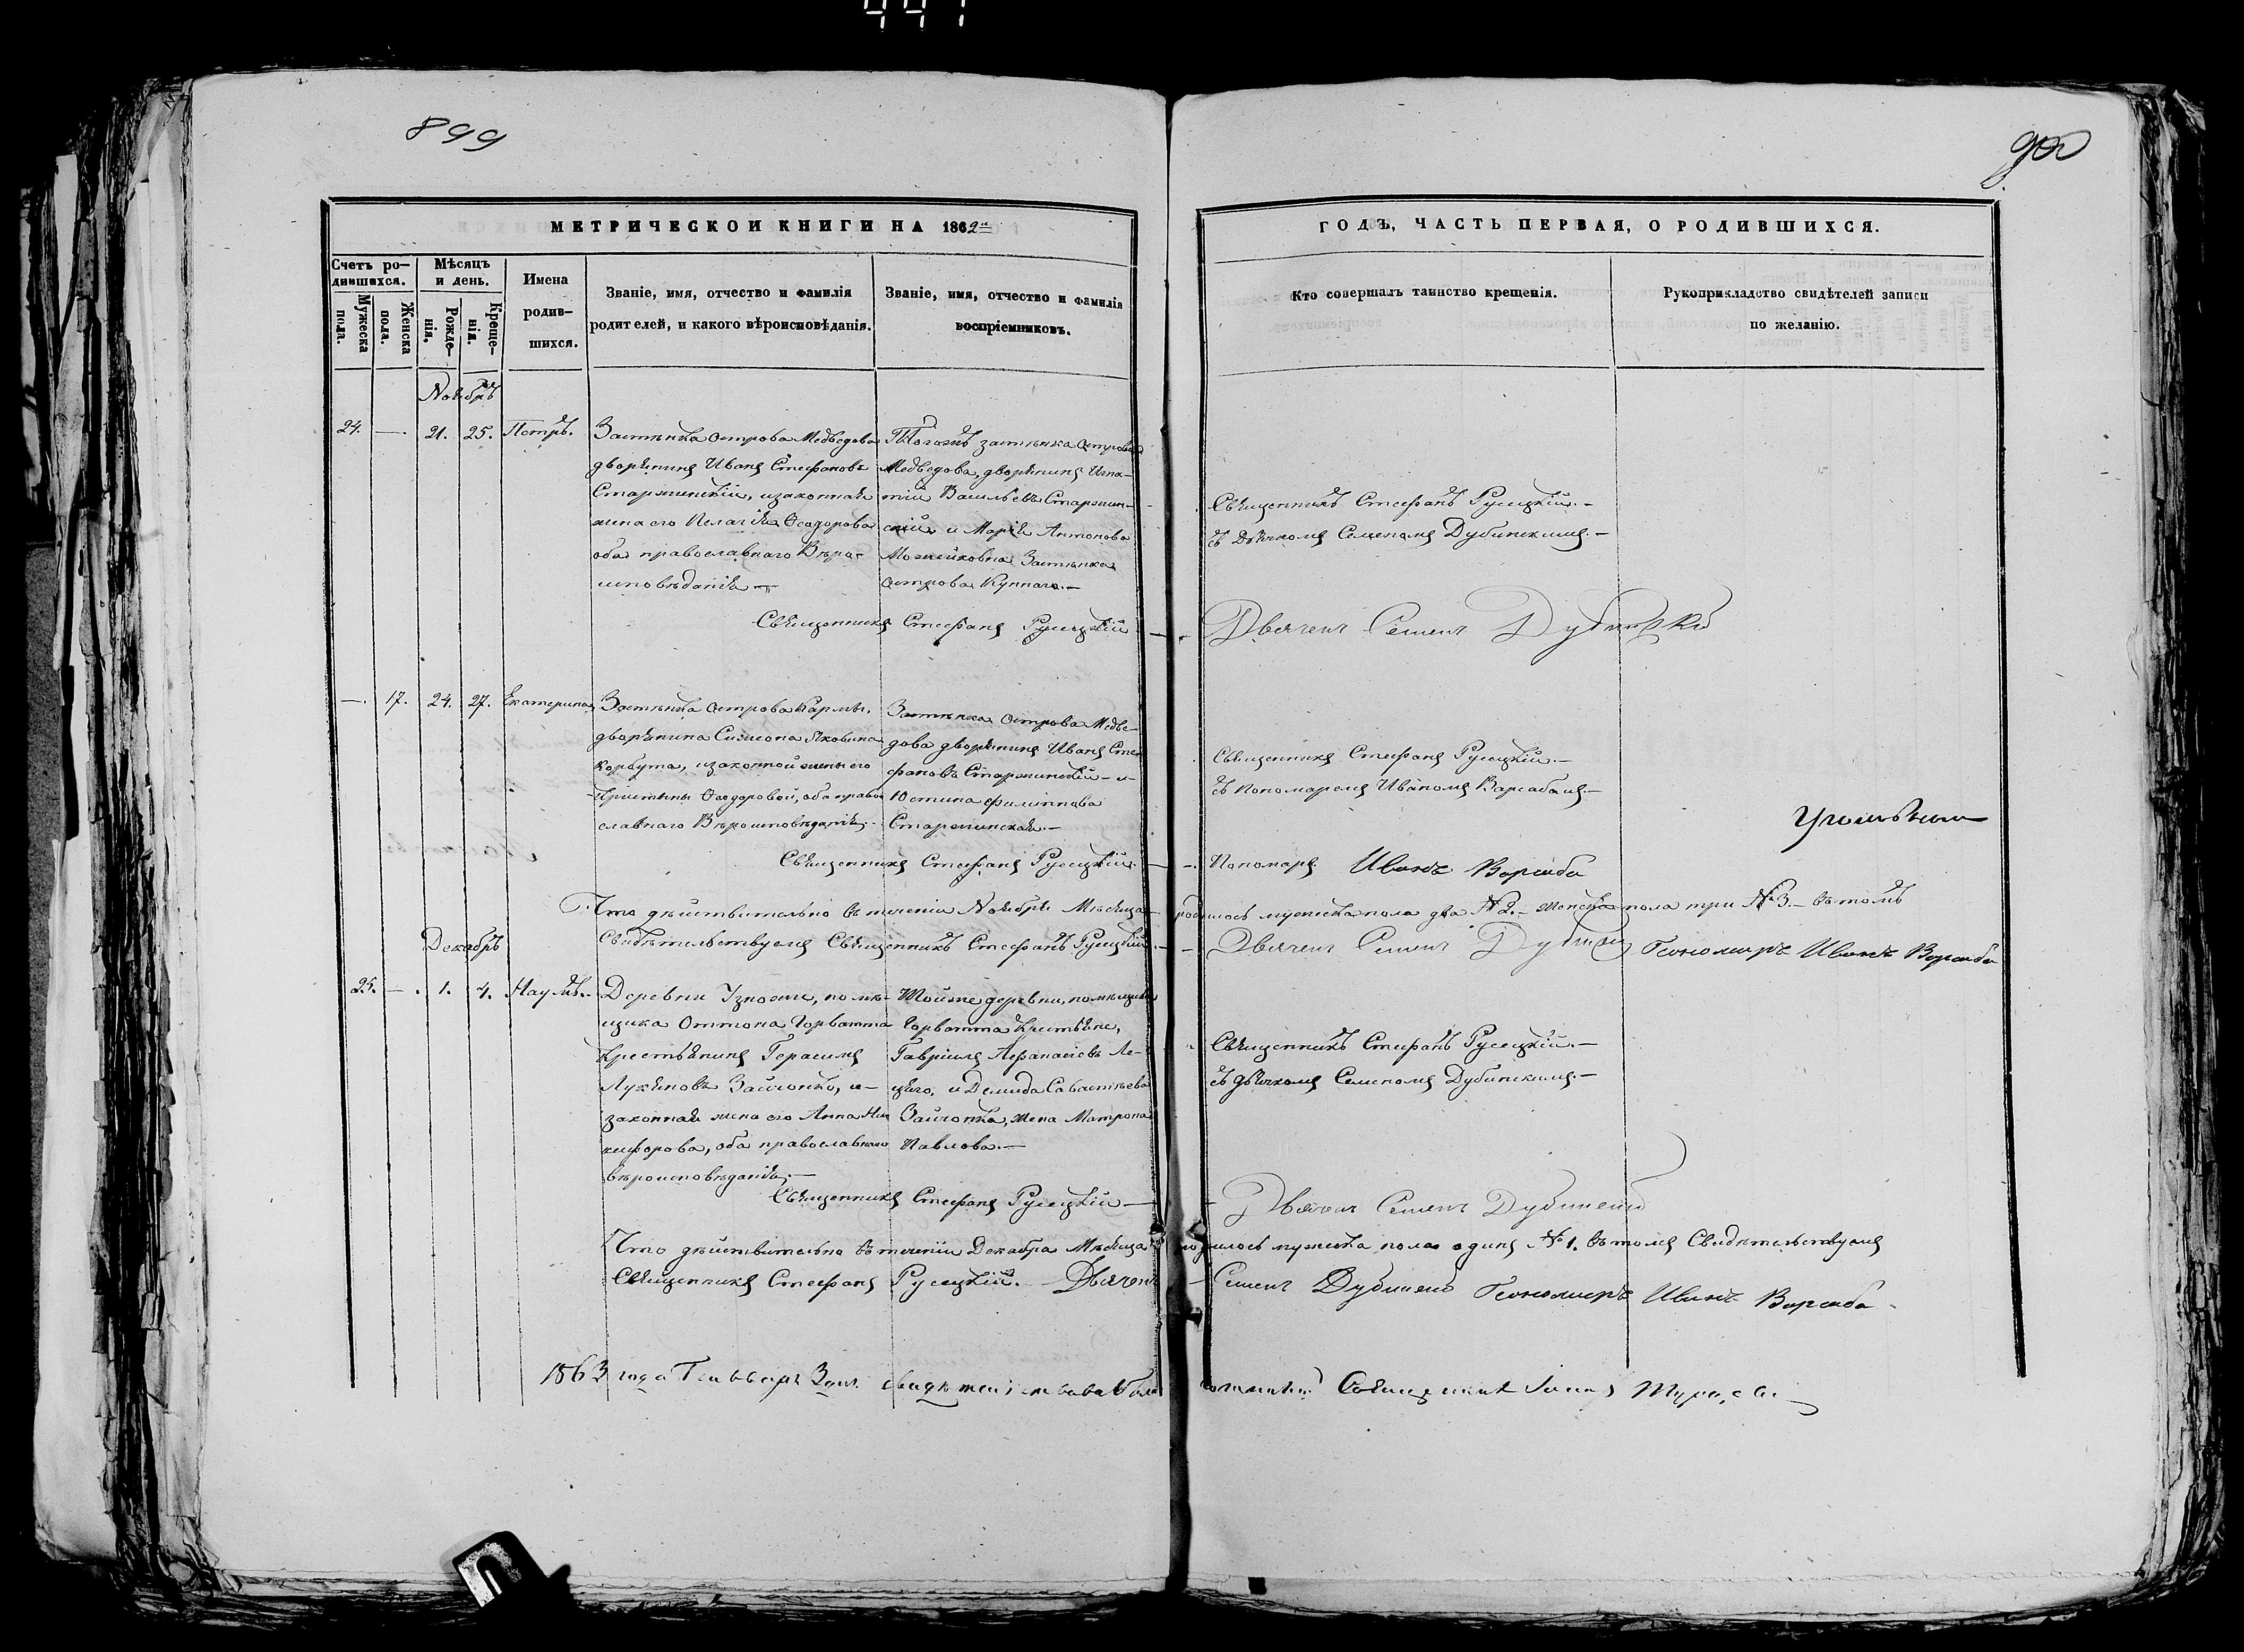 899
900
МЕТРИЧЕСКОЙ КНИГИ НА 1862й
ГОДЪ, ЧАСТЬ ПЕРВАЯ, О РОДИВШИХСЯ.
Счетъ ро-
дившихся.
Мужеска
пола.
Женска
пола.
Мѣсяцъ
и день.
Рожде-
нія.
Креще-
нія.
Имена
родив-
шихся.
Званіе, имя, отчество и фамилія
родителей, и какого вѣроисповѣданія.
Званіе, имя, отчество и фамилія
воспріемниковъ.
Кто совершалъ таинство крещенія.
Рукоприкладство свидѣтелей записи
по желанію.
Ноябрь
24. — 21. 25. Петръ.
Застѣнка Острова Медведова
дворянинъ Иванъ Стефановъ
Старжинскій, и законная
жена его Пелагія Ѳеодорова
оба православнаго Вѣро-
исповѣданія —
Тогожъ застѣнка Острова
Медведова, дворянинъ Игна-
тій Васильевъ Старжин-
скій и Марія Антонова
Можейковна Застѣнка
Острова Купнаго. —
Священникъ Стефанъ Русецкій. —
съ Дьячкомъ Семеномъ Дубинскимъ. —
Священникъ Стефанъ Русецкій —
Двячекъ Семенъ Дубинский
— 17. 24. 27. Екатерина
Застѣнка Острова
дворянина Симеона Яковина
Корбута, и законной жены его
Христины Ѳеодоровой, оба право-
славнаго Вѣроисповѣданія. —
Застѣнка Острова Медве-
дова дворянинъ Иванъ Сте-
фановъ Старжинскій — и
Юстина Филиппова
Старжинская. —
Священникъ Стефанъ Русецкій. —
съ Пономаремъ Иваномъ Варсабамъ. —
Священникъ Стефанъ Русецкій. —
Пономарь Иванъ
Что дѣйствительно въ теченіи Ноября Мѣсяца родилось мужеска пола два № 2. — женска пола три № 3. — въ томъ
Свидѣтельствуемъ Священникъ Стефанъ Русецкій. — Двячекъ Семенъ Пономаръ Иванъ
Декабрь
25. — 1. 4. Наумъ. —
Деревни Узноги, помѣ-
щика Оттона Горватта
Крестьянинъ Герасимъ
Лукьяновъ Зайчонко, и —
законная жена его Анна Ни-
кифорова, оба православнаго
вѣроисповѣданія. —
Той же деревни, помѣщика
Горватта Крестьяне,
Гавріилъ Афанасіевъ
и Демида Савастьева
Зайчонка, жена Матрона
Павлова. —
Священникъ Стефанъ Русецкій. —
съ дьячкомъ Семеномъ Дубинскимъ. —
Священникъ Стефанъ Русецкій —
Двячекъ Семенъ Дубинский
Что дѣйствительно въ теченіи Декабря Мѣсяца родилось мужеска пола одинъ № 1. въ томъ Свидѣтельствуемъ
Священникъ Стефанъ Русецкій. — Двячекъ Семенъ Дубинский Пономаръ Иванъ
1863 года Генваря 3 дня свидѣтельствовалъ Священникъ